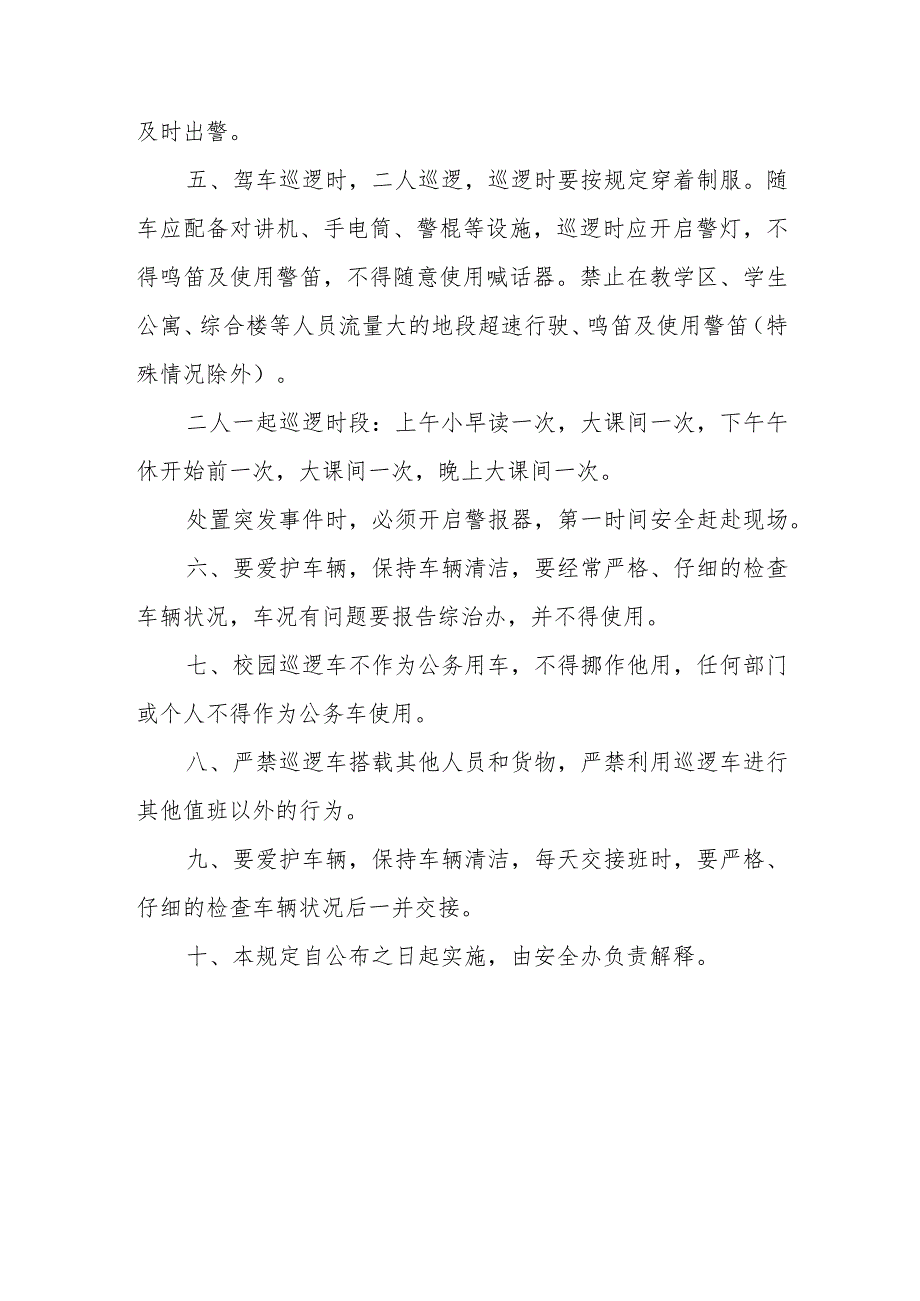 及时出警。
五、驾车巡逻时，二人巡逻，巡逻时要按规定穿着制服。随
车应配备对讲机、手电筒、警棍等设施，巡逻时应开启警灯，不
得鸣笛及使用警笛，不得随意使用喊话器。禁止在教学区、学生
公寓、综合楼等人员流量大的地段超速行驶、鸣笛及使用警笛（特
殊情况除外）。
二人一起巡逻时段：上午小早读一次，大课间一次，下午午
休开始前一次，大课间一次，晚上大课间一次。
处置突发事件时，必须开启警报器，第一时间安全赶赴现场。
六、要爱护车辆，保持车辆清洁，要经常严格、仔细的检查
车辆状况，车况有问题要报告综治办，并不得使用。
七、校园巡逻车不作为公务用车，不得挪作他用，任何部门
或个人不得作为公务车使用。
八、严禁巡逻车搭载其他人员和货物，严禁利用巡逻车进行
其他值班以外的行为。
九、要爱护车辆，保持车辆清洁，每天交接班时，要严格、
仔细的检查车辆状况后一并交接。
十、本规定自公布之日起实施，由安全办负责解释。